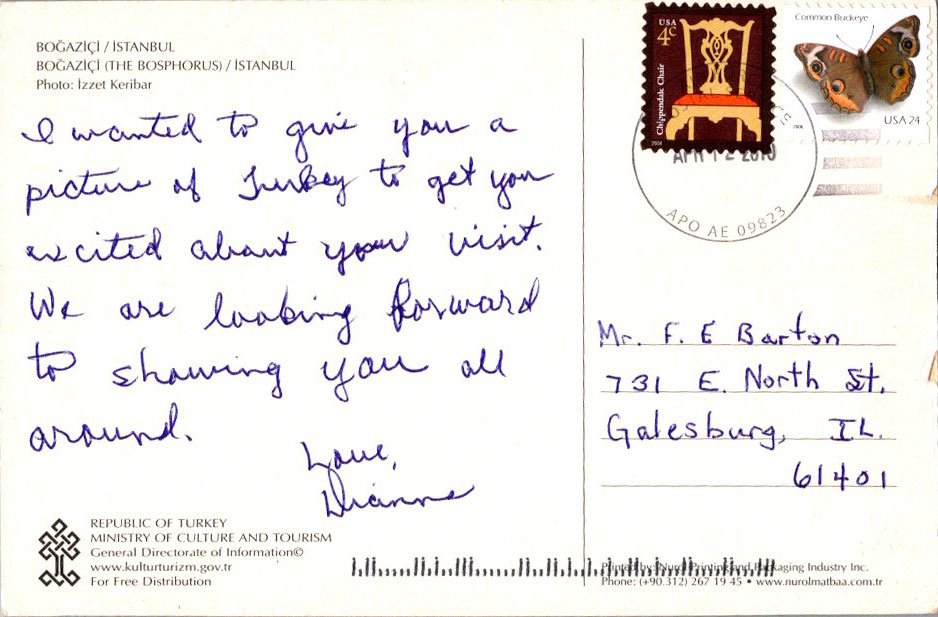 BOĞAZİÇİ / İSTANBUL
BOĞAZİÇİ (THE BOSPHORUS) / İSTANBUL
Photo: İzzet Keribar
I wanted to give you a
picture of Turkey to get you
excited about your visit.
We are looking forward
to showing you all
around.
Love,
Dianne
REPUBLIC OF TURKEY
MINISTRY OF CULTURE AND TOURISM
General Directorate of Information©
www.kulturturizm.gov.tr
For Free Distribution
USA
4c
Chippendale Chair
2004
Common Buckeye
USA 24
2006
APR 12 2010
APO AE 09823
Mr. F. E Barton
731 E. North St.
Galesburg, IL.
61401
Printed by: Nurol Printing and Packaging Industry Inc.
Phone: (+90.312) 267 19 45 • www.nurolmatbaa.com.tr